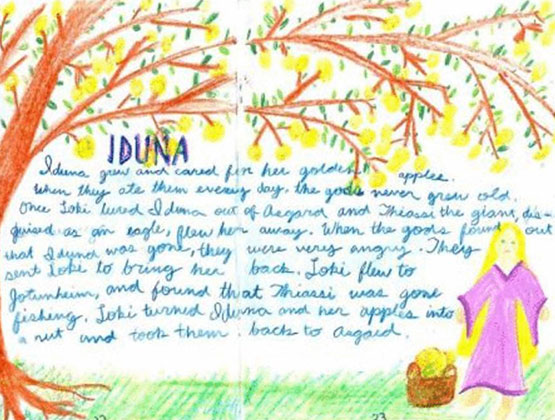 IDUNA
Iduna grew and cared for her golden apples.
When they ate them every day, the gods never grew old.
Once Loki lured Iduna out of Asgard and Thiassi the giant, dis-
guised as an eagle, flew her away. When the gods found out
that Iduna was gone, they were very angry. They
sent Loki to bring her back. Loki flew to
Jotunheim, and found that Thiassi was gone
fishing. Loki turned Iduna and her apples into
a nut and took them back to Asgard.
23